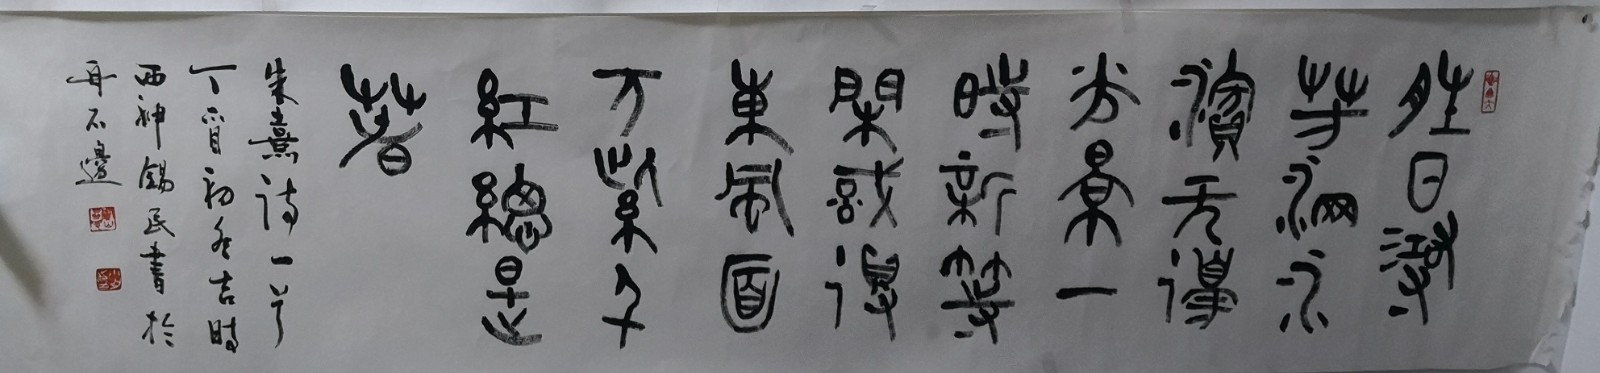 胜日尋
芳泗水
濱无邊
光景一
時新等
閑識得
東風面
万紫千
紅總是
春
朱熹诗一首
丁酉初冬吉時
西神錫民書於
石邊